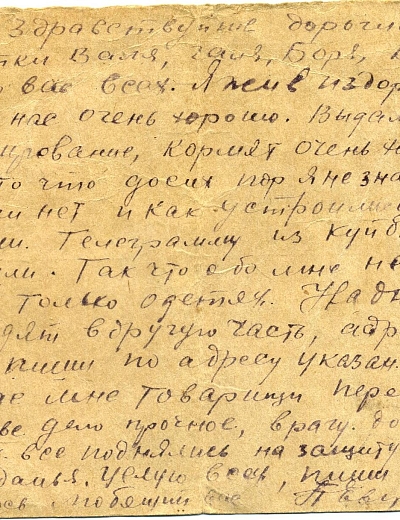 Здравствуйте дороги
тки Валя, Галя, Боря,
вас всех. Я жив и здор
нас очень хорошо. Выдал
ирование, кормят очень х
то что до сих пор я не зна
ли нет и как устроили
ми. Телеграмму из Куйб
ли. Так что обо мне не
только о детях. На дн
дят в другую часть, адр
пиши по адресу указан.
ае мне товарищи пере
ве дело прочное, врагу до
все поднялись на защиту
Целую всех, пиши